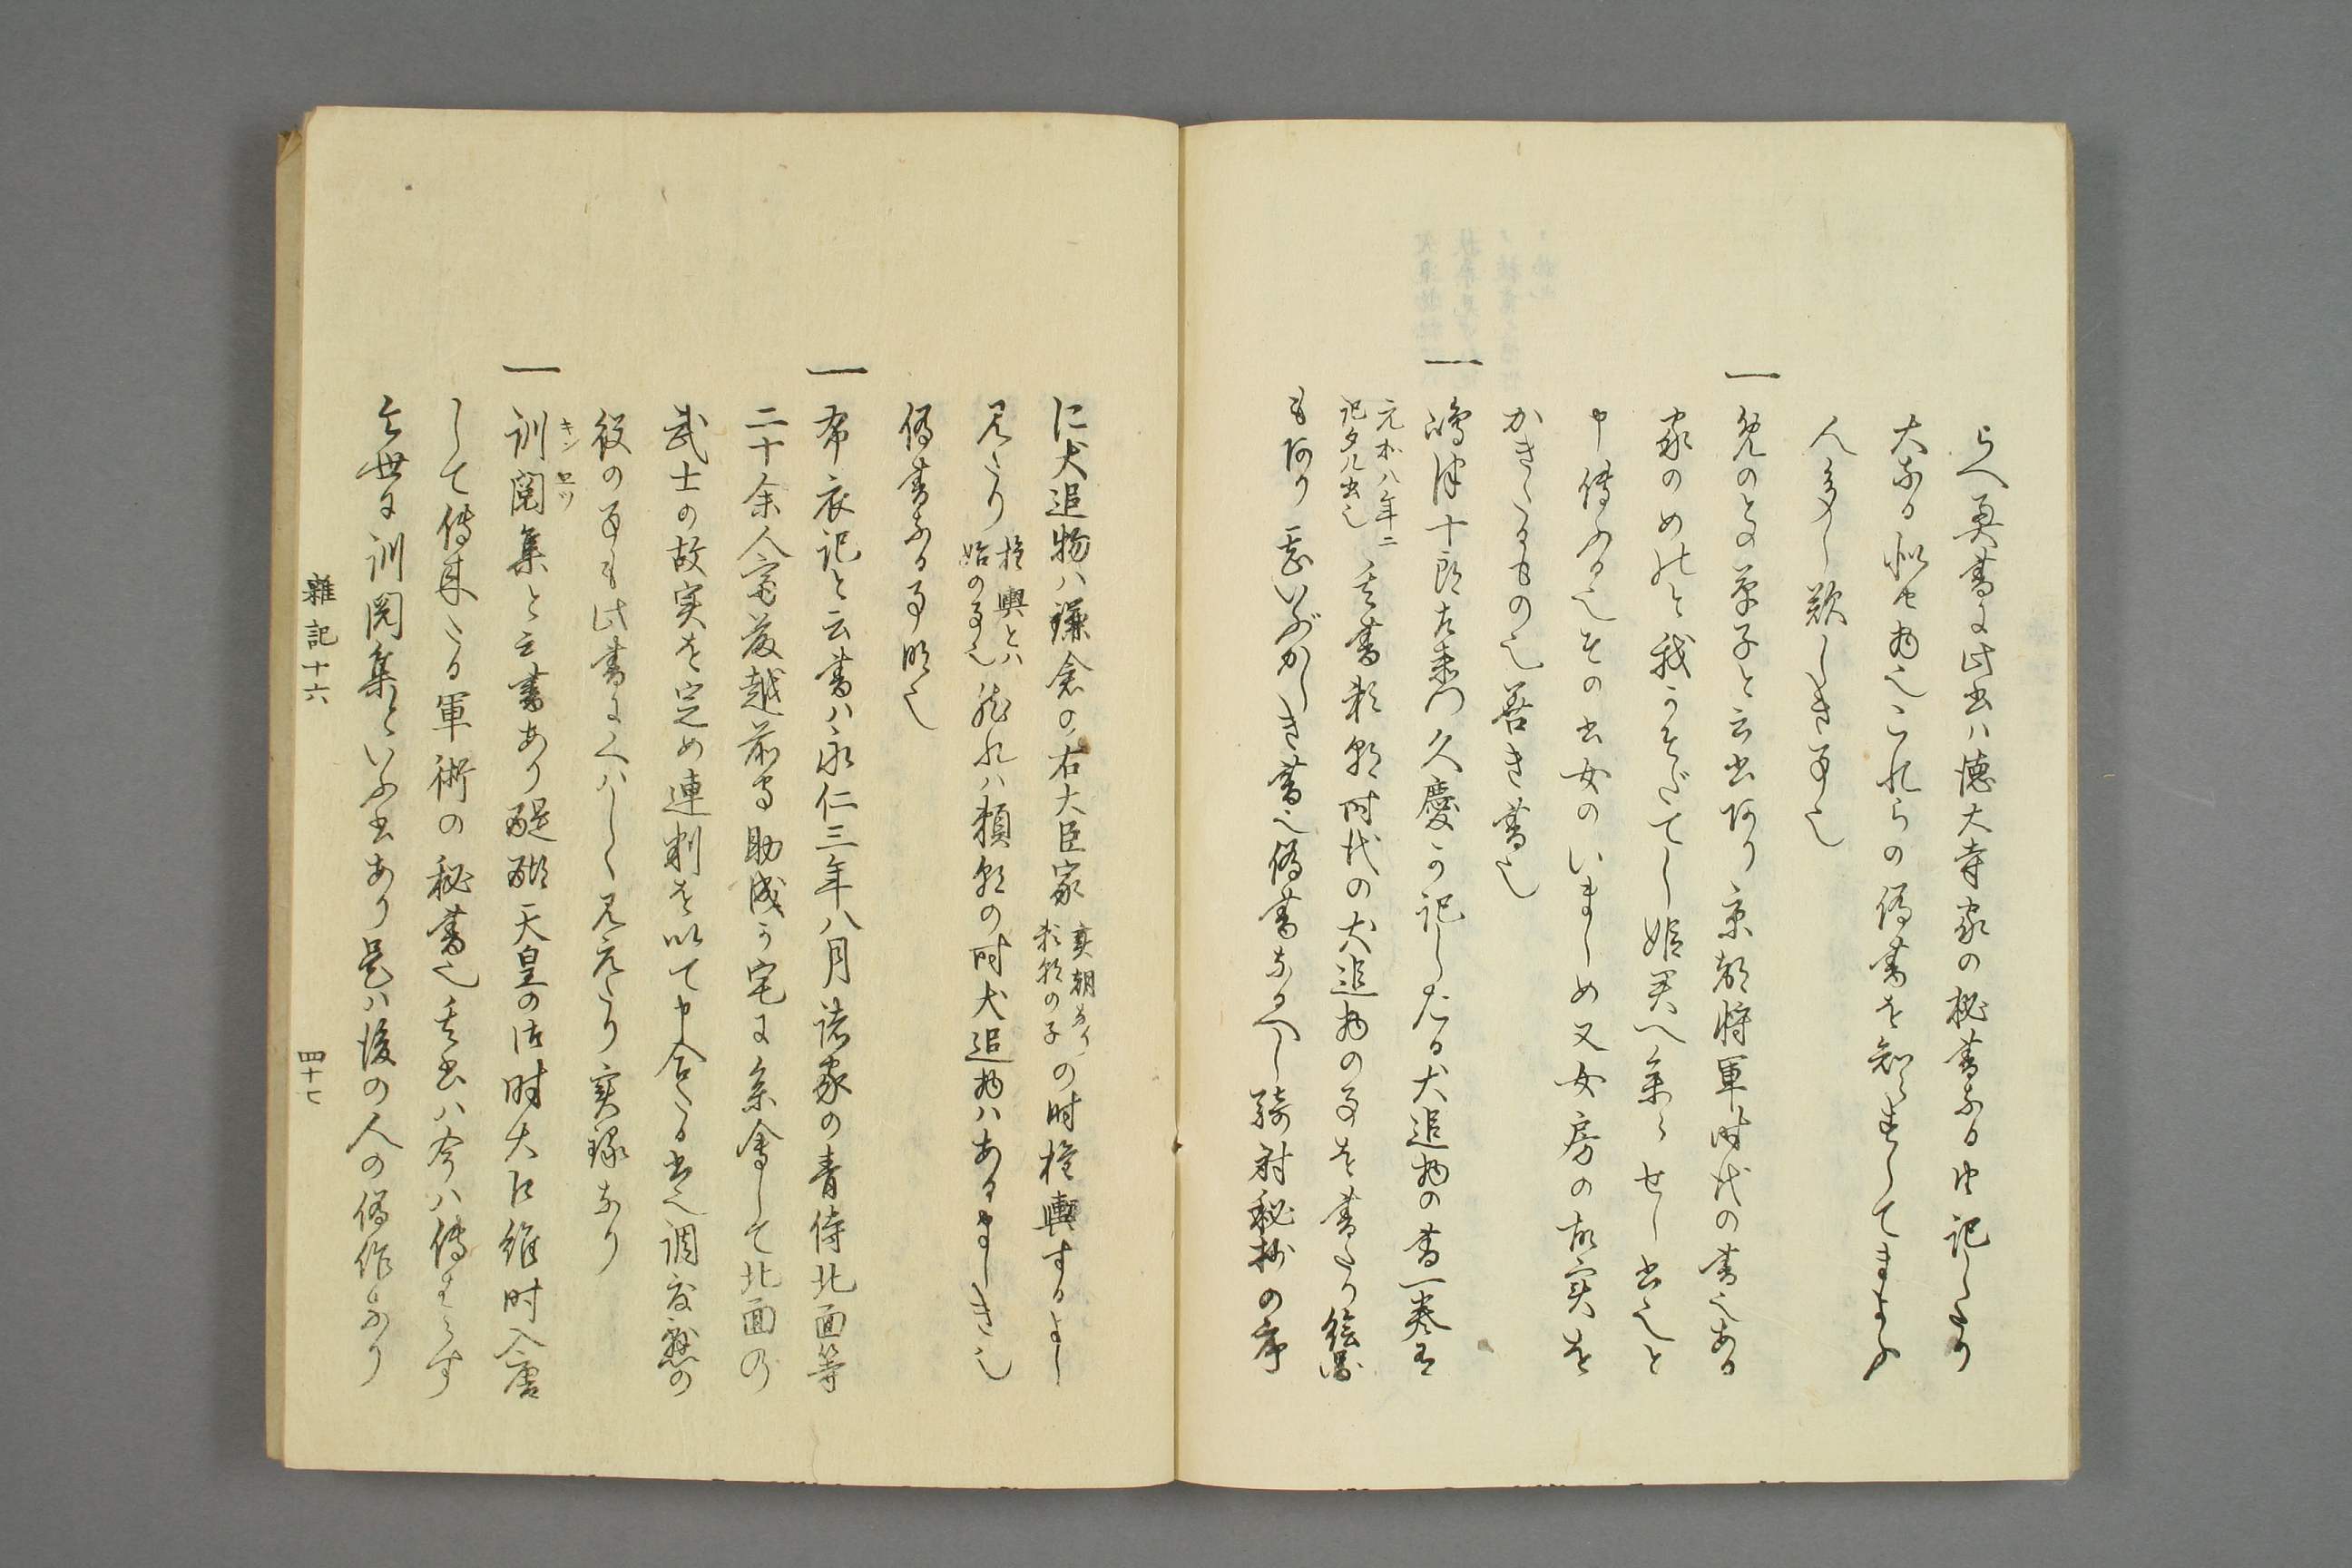 らへ奥書に此書ハ徳大寺家の秘書なる由記したり
大なる似せ物也これらの偽書を知らすしてまよふ
人多し歎しき事也
一 めのとの草子と云書あり京都将軍時代の書也ある
家のめのと我そだてし姫君へ参らせし書也と
申傳ふる也その書女のいましめ又女房の故実を
かきたるもの也善き書也
一 嶋津十郎左衛門久慶か記したる犬追物の書一巻有
元和八年ニ記タル書也 其書頼朝時代の犬追物の事を書たり絵図
もあり甚いぶかしき書也偽書なるへし騎射秘抄の序
に犬追物ハ鎌倉の右大臣家 実朝なり頼朝の子 の時権輿するよし
見えたり 権輿とハ始の事也 然れハ頼朝の時犬追物ハあるましき也
偽書なる事明也
一 布衣記と云書ハ永仁三年八月諸家の青侍北面等
二十余人斎藤越前守助成か宅に参會して北面の
武士の故実を定め連判を以て申合たる書也調度懸の
役の事も此書にくハしく見えたり実録なり
一 訓閲集 キンエツ と云書あり醍醐天皇の御時大江維時入唐
して傳来たる軍術の秘書也其書ハ今ハ傳わらす
今世に訓閲集といふ書あり是ハ後の人の偽作なり
雑記十六
四十七